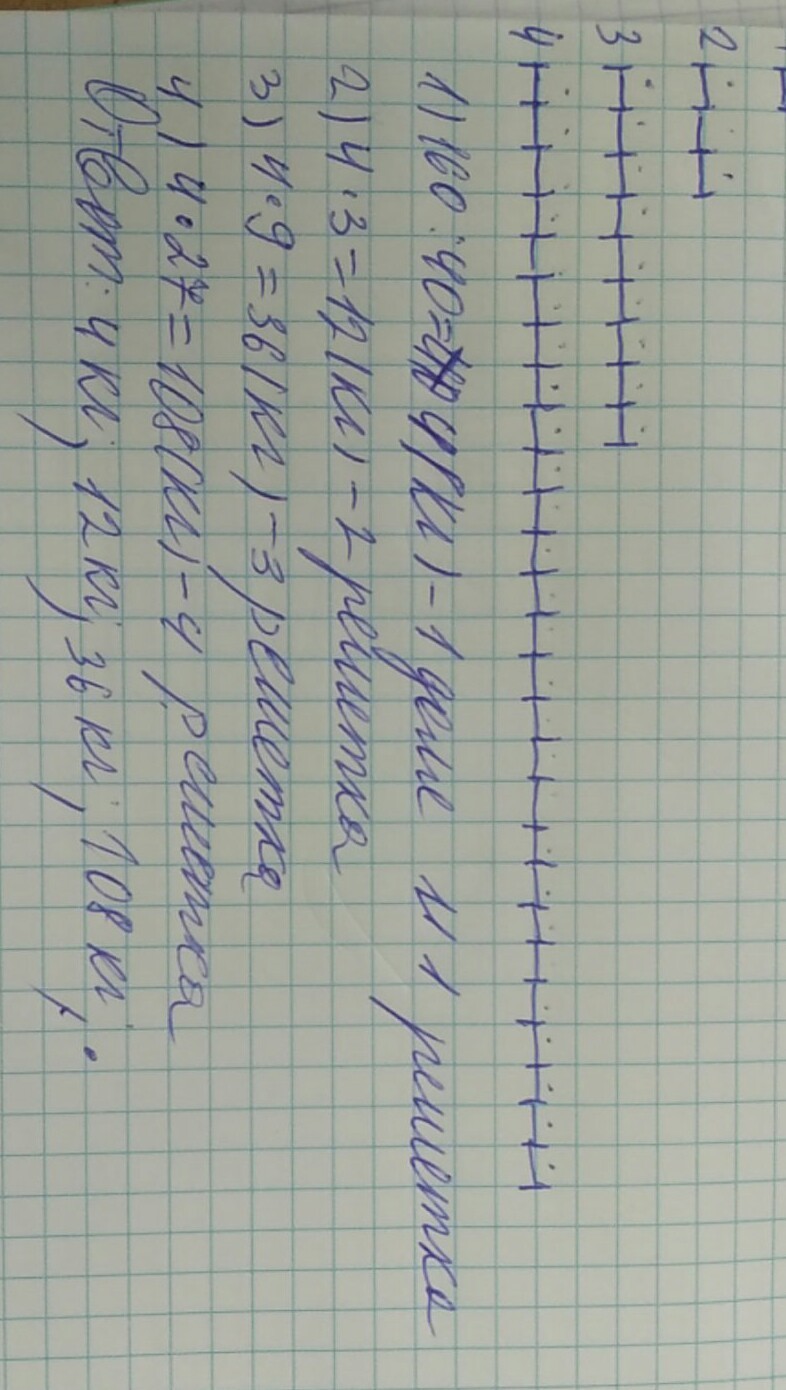 2
3
4
1) 160 : 40 = 4 (кг) - 1 деле и 1 решетка
2) 4 · 3 = 12 (кг) - 2 решетка
3) 4 · 9 = 36 (кг) - 3 решетка
4) 4 · 27 = 108 (кг) - 4 решетка
Ответ: 4 кг, 12 кг, 36 кг, 108 кг.